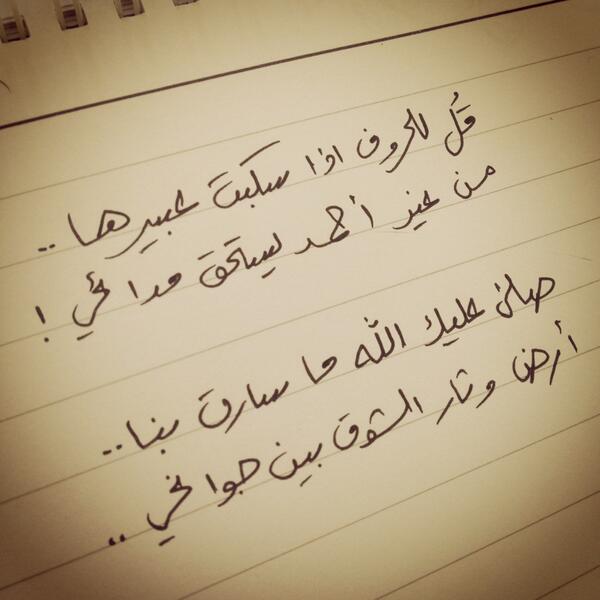 قُل للحروف اذا سكبت عبيرها ..
من غير أحمد يستحق مدائحي !
صلى عليك الله ما سارت بنا ..
أرض وثار الشوق بين جوانحي ..